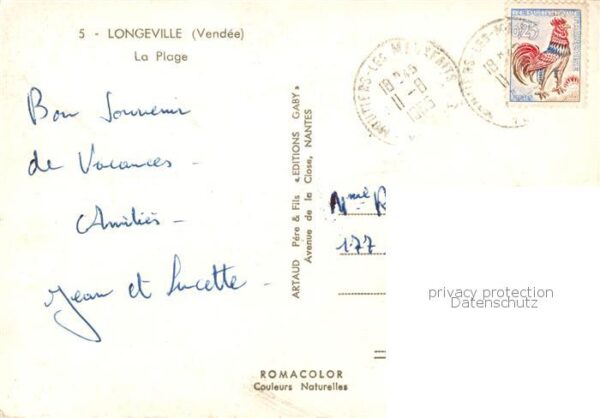 5 - LONGEVILLE (Vendée)
La Plage
0,25
MOUTIERS-LES-MAUXFAITS
18 H 45
11 - 8
1965
18 H
11
Bon Souvenir
de Vacances -
Amitiés -
Jean et Lucette -
ARTAUD Père & Fils «EDITIONS GABY»
Avenue de la Close, NANTES
Mme
177
privacy protection
Datenschutz
ROMACOLOR
Couleurs Naturelles